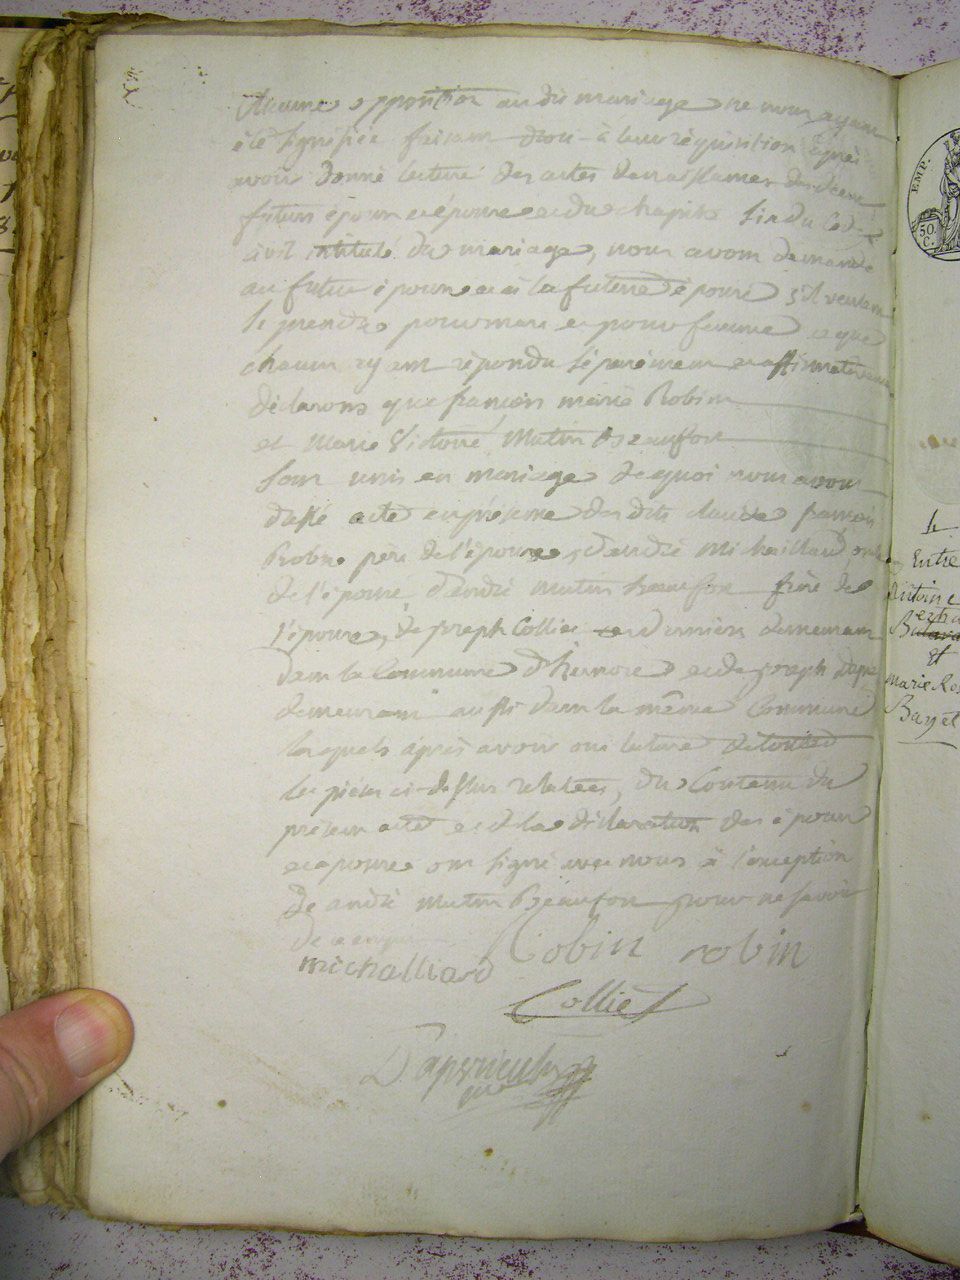 Aucune opposition audit mariage ne nous ayant
été signifiée faisant droit à leur réquisition après
avoir donné lecture des actes de naissances des deux
futurs époux et épouse et du chapitre six du Code
civil intitulé du mariage, nous avons demandé
au futur époux et à la future épouse s'il veulent
se prendre pour mari et pour femme ce que
chacun ayant répondu séparément et affirmativement
déclarons que françois marie Robin
et Marie Victoire Mutin Beaufort
sont unis en mariage de quoi nous avons
dressé acte en présence des dits claude françois
Robin père de l'époux, d'andré Michaillard oncle
de l'épouse d'andré Mutin beaufort frère de
l'épouse, de joseph Collier derniers demeurant
dans la Commune et de joseph
demeurant aussi dans la même Commune
lesquels après avoir oui lecture de toutes
les pièces ci-dessus relatées, du Contenu du
présent acte et de la déclaration des époux
et épouse ont signé avec nous à l'exception
de andré Mutin Beaufort pour ne savoir
de ce enquis
michalliard Robin robin
Collier
EMP.
50.
C.
Le
Entre
Antoine
et
Marie Ro
Bayet